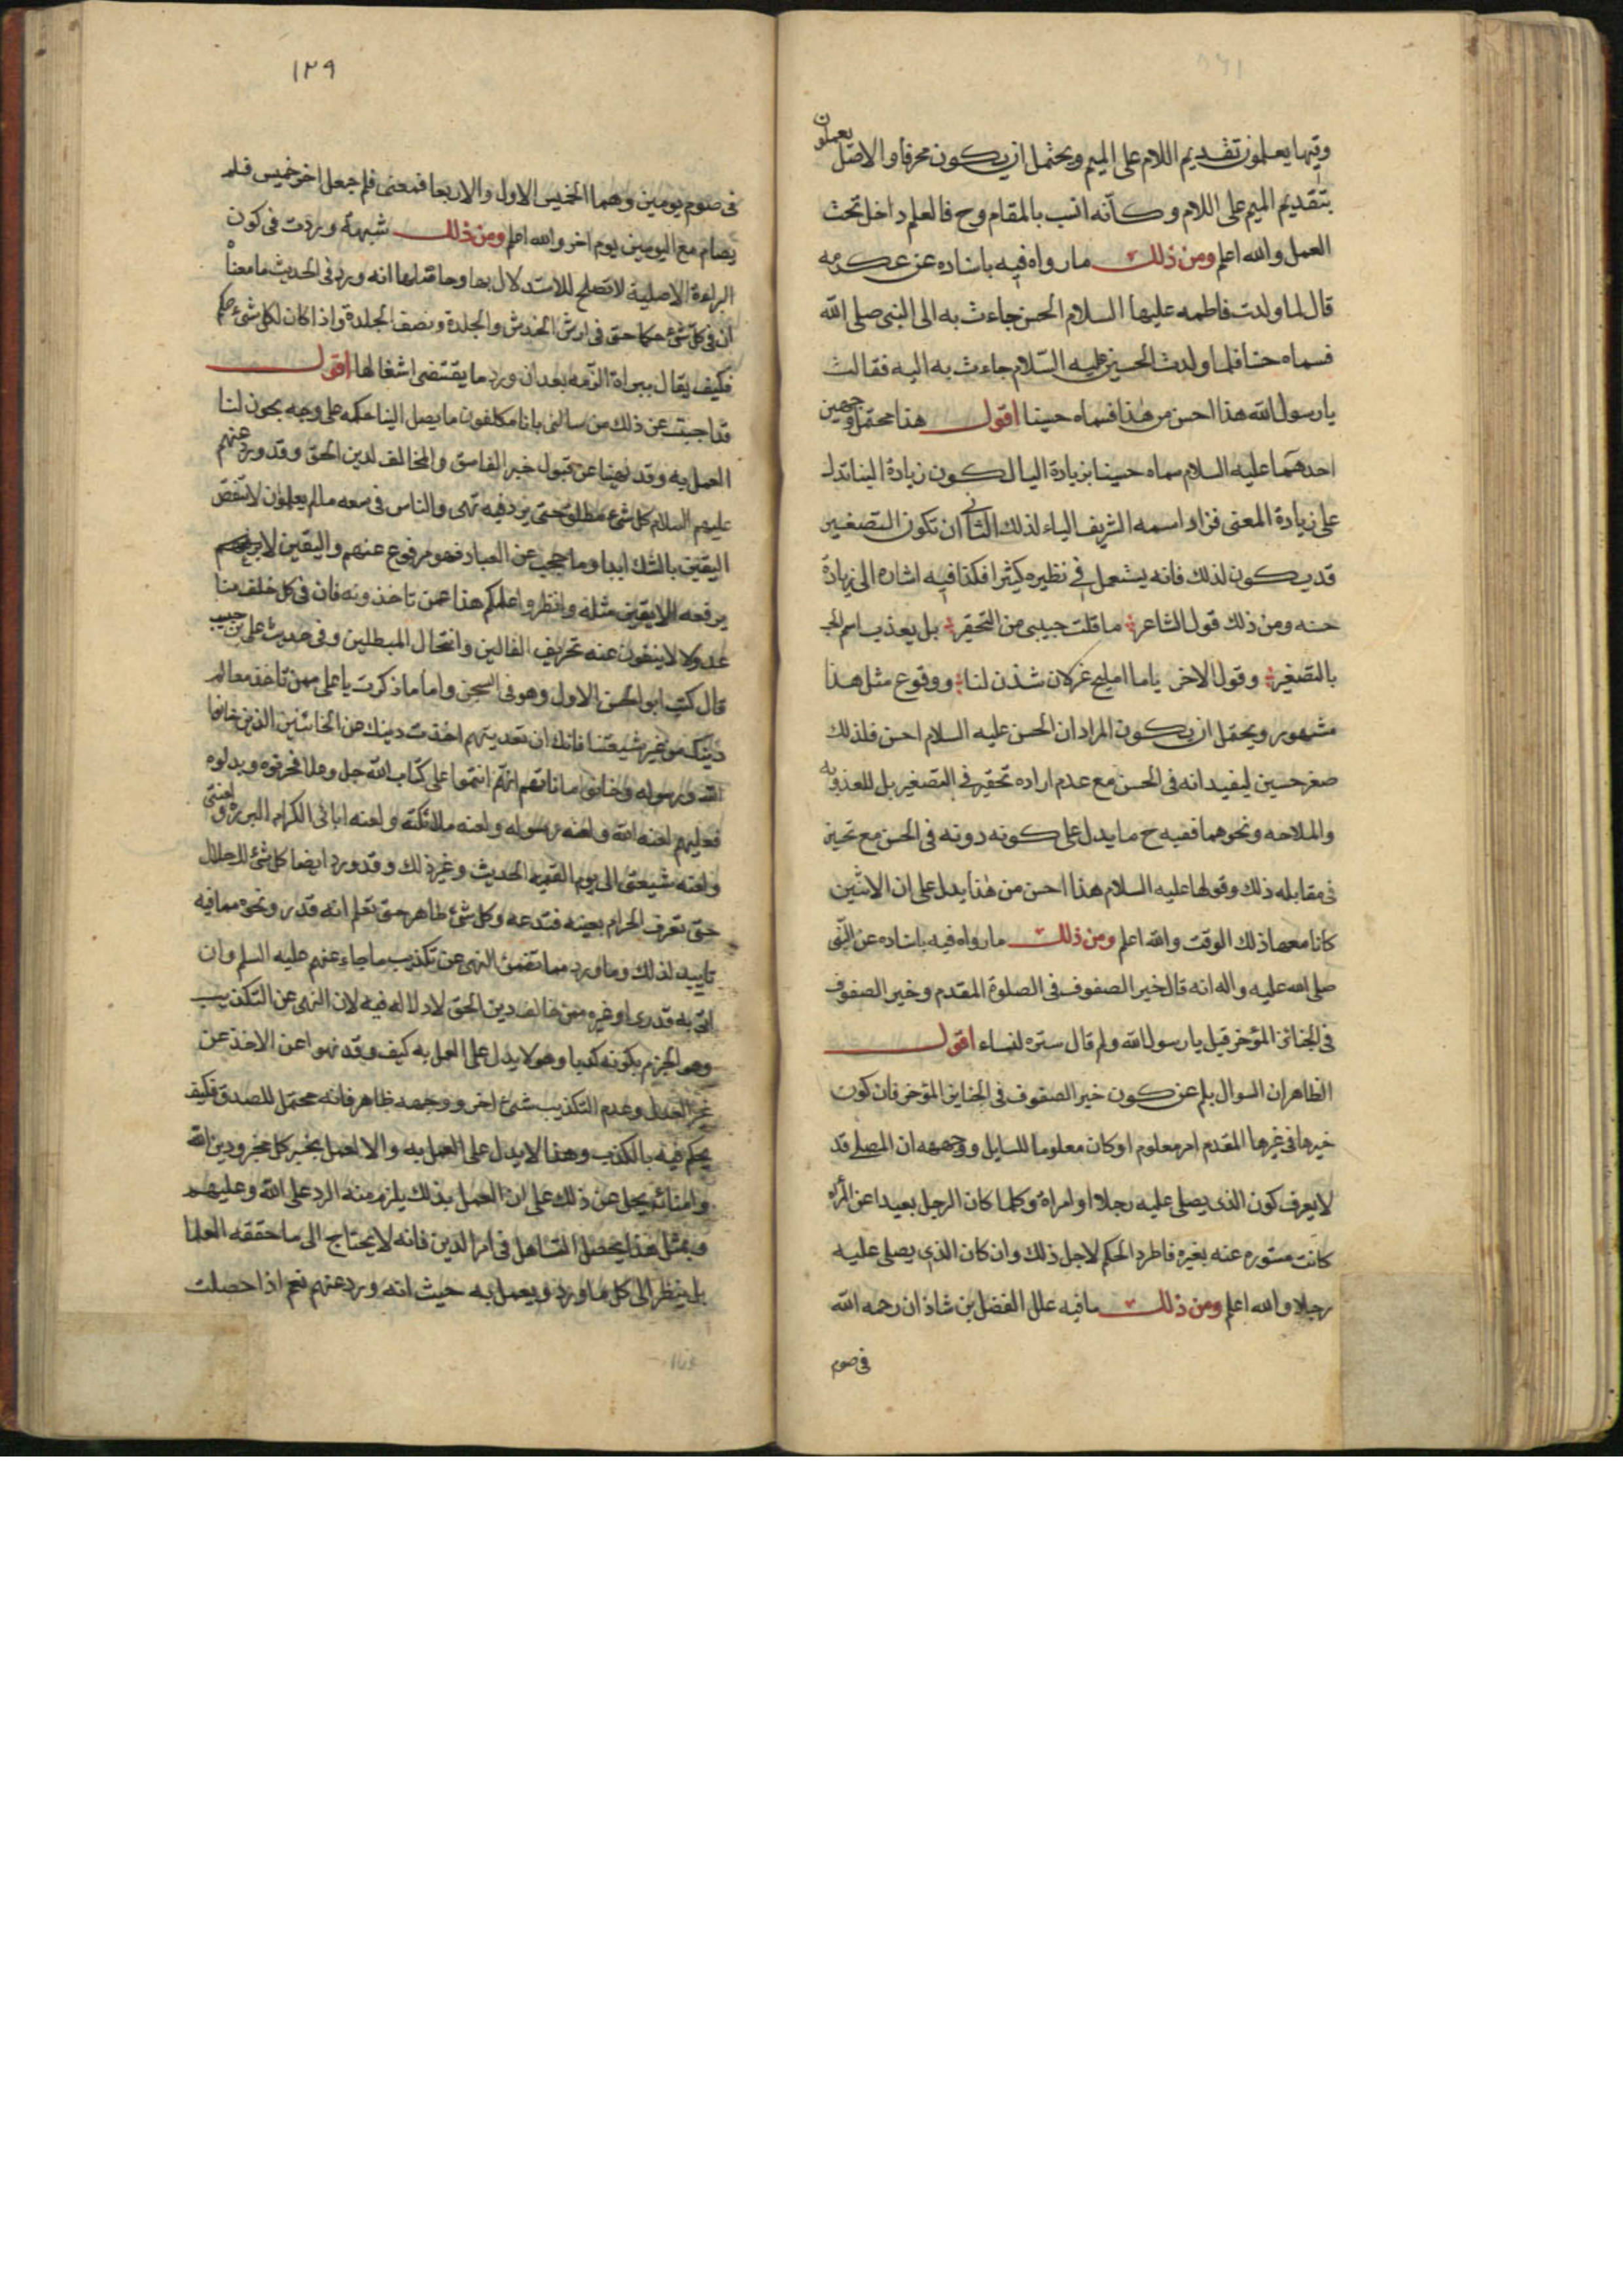 وفيها يعلمون تقديم اللام على الميم ويحتمل ان يكون محرفا والاصل يعملون
بتقديم الميم على اللام وكأنه انسب بالمقام وح فالعلم داخل تحت
العمل والله اعلم ومن ذلك ما رواه فيه باسناده عن عكرمه
قال لما ولدت فاطمه عليها السلام الحسن جاءت به الى النبي صلى الله
فسماه حسنا فلما ولدت الحسين عليه السلام جاءت به اليه فقالت
يا رسول الله هذا احسن من هذا فسماه حسينا اقول هذا محتمل وجهين
احدهما عليه السلام سماه حسينا بزيادة اليا لكون زيادة البنا تدل
على زيادة المعنى فزاد اسمه الشريف الياء لذلك الثاني ان تكون التصغير
قد يكون لذلك فانه يستعمل في نظيره كثيرا فكذا فيه اشاره الى زيادة
حسنه ومن ذلك قول الشاعر ما قلت حبيبي من التحقير بل يعذب اسم
بالتصغير وقول الاخر ياما اميلح غزلان شدن لنا ووقوع مثل هذا
مشهور ويحتمل ان يكون المراد ان الحسن عليه السلام احسن فلذلك
صغر حسين ليفيد انه في الحسن مع عدم اراده تحقير في التصغير بل للعذوبه
والملاحه ونحوهما ففيه ح ما يدل على كونه دونه في الحسن مع تحسين
في مقابله ذلك وقولها عليه السلام هذا احسن من هذا يدل على ان الاثنين
كانا معها ذلك الوقت والله اعلم ومن ذلك ما رواه فيه باسناده عن النبي
صلى الله عليه واله انه قال خير الصفوف في الصلوة المقدم وخير الصفوف
في الجنائز المؤخر قيل يا رسول الله ولم قال ستره لنساء اقول
الظاهر ان السوال بلم عن كون خير الصفوف في الجنايز المؤخر فان كون
خيرها في غيرها المقدم امر معلوم او كان معلوما للسايل ووجهه ان المصلى قد
لا يعرف كون الذي يصلى عليه رجلا او امراة وكلما كان الرجل بعيدا عن المرأه
كانت مستوره عنه بغيره فاطرد الحكم لاجل ذلك وان كان الذي يصلى عليه
رجلا والله اعلم ومن ذلك ما فيه علل الفضل بن شاذان رحمه الله
في صوم
١٢٩
في صوم يومين وهما الخميس الاول والاربعا فمعنى فلم جعل اخر خميس فلم
يصام مع اليومين يوم اخر والله اعلم ومن ذلك شبهة وردت في كون
البراءة الاصلية لا تصلح للاستدلال بها وحاصلها انه ورد في الحديث ما معناه
ان في كل شئ حكما حتى في ارش الخدش والجلدة ونصف الجلدة واذا كان لكل شئ حكم
فكيف يقال ببراة الذمه بعد ان ورد ما يقتضى اشغالها اقول
قد اجبت عن ذلك من سالني بانا مكلفون ما يصل الينا حكمه على وجه يجوز لنا
العمل به وقد نهينا عن قبول خبر الفاسق والمخالف لدين الحق وقد ورد عنهم
عليهم السلام كل شئ مطلق حتى يرد فيه نهى والناس في سعه ما لم يعلموا ولا تنقض
اليقين بالشك ابدا وما حجب عن العباد فهو مرفوع عنهم واليقين لا
يرفعه الا يقين مثله وانظروا علمكم هذا عمن تاخذونه فان في كل خلف منا
عدولا لا ينفون عنه تحريف الغالين وانتحال المبطلين وفي حديث على بن حبيب
قال كتب ابو الحسن الاول وهو في السجن واما ما ذكرت يا على ممن تاخذ معالم
دينك من غير شيعتنا فانك ان تعديتهم اخذت دينك عن الخائنين الذين خانوا
الله ورسوله وخانوا اماناتهم انهم ائتمنوا على كتاب الله جل وعلا فحرفوه وبدلوه
فعليهم لعنه الله ولعنه رسوله ولعنه ملائكته ولعنه ابائي الكرام البرره ولعنتي
ولعنه شيعتي الى يوم القيمه الحديث وغير ذلك وقد ورد ايضا كل شئ لك حلال
حتى تعرف الحرام بعينه فتدعه وكل شئ طاهر حتى تعلم انه قذر ونحوه مما فيه
تاييد لذلك وما ورد مما تضمن النهى عن تكذيب ما جاء عنهم عليه السلم وان
اتى به قدرى او غيره ممن خالف دين الحق لا دلاله فيه لان النهى عن التكذيب
وهو الجزم بكونه كذبا وهو لا يدل على العمل به كيف وقد نهوا عن الاخذ عن
غير العدل وعدم التكذيب شئ اخر ووجهه ظاهر فانه محتمل للصدق فكيف
يحكم فيه بالكذب وهذا لا يدل على العمل به والا لعمل بخبر كل مخبر ودين الله
وامنائه يجل عن ذلك على ان العمل بذلك يلزم منه الرد على الله وعليهم
وبمثل هذا يحصل التساهل في امر الدين فانه لا يحتاج الى ما حققه العلما
بل ينظر الى كل ما ورد ويعمل به حيث انه ورد عنهم نعم اذا حصلت